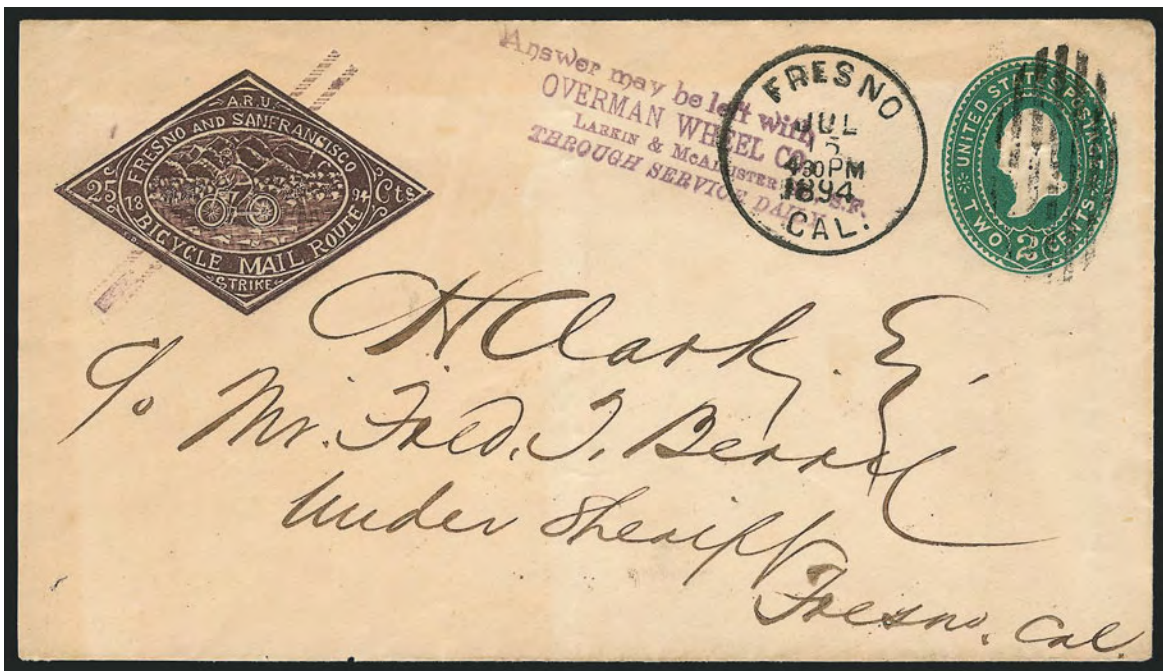 A.R.U.
FRESNO AND SANFRANCISCO
25 Cts
18 94
BICYCLE MAIL ROUTE
STRIKE
Answer may be left with
OVERMAN WHEEL CO.
LARKIN & MCALLISTER S.F.
THROUGH SERVICE DAILY
FRESNO
JUL
4 30 PM
1894
CAL.
UNITED STATES POSTAGE
TWO 2 CENTS
H Clark, E.
c/o Mr. Fred. T. Berry
Under Sheriff
Fresno. Cal.